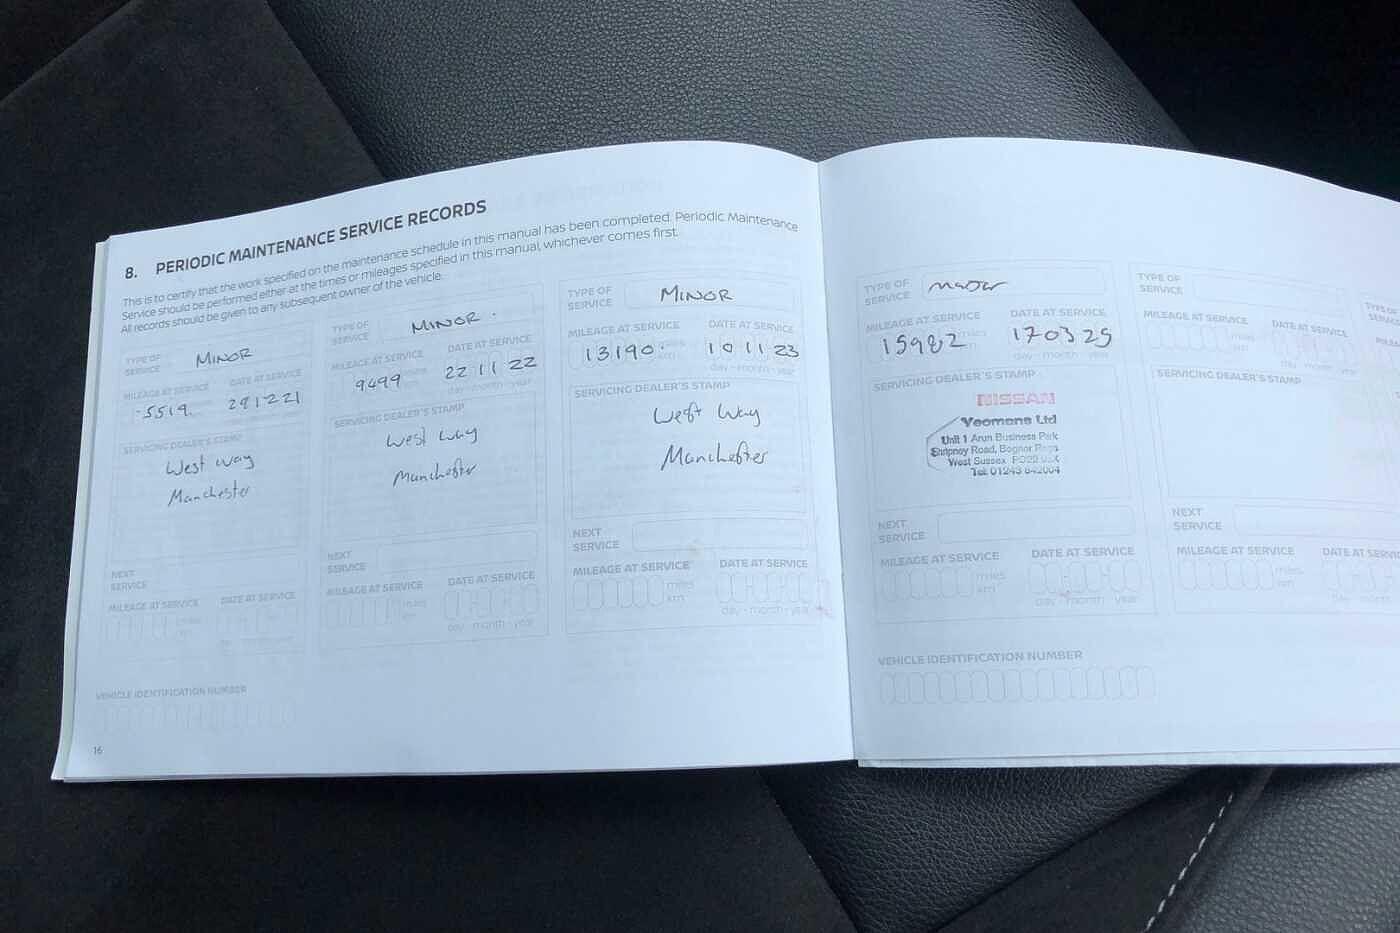 8. PERIODIC MAINTENANCE SERVICE RECORDS
This is to certify that the work specified on the maintenance schedule in this manual has been completed. Periodic Maintenance
Service should be performed either at the times or mileages specified in this manual, whichever comes first.
All records should be given to any subsequent owner of the vehicle.
TYPE OF
SERVICE
MINOR
MILEAGE AT SERVICE DATE AT SERVICE
5519 291221
SERVICING DEALER'S STAMP
West Way
Manchester
NEXT
SERVICE
MILEAGE AT SERVICE DATE AT SERVICE
TYPE OF
SERVICE
MINOR.
MILEAGE AT SERVICE DATE AT SERVICE
9499 22 11 22
day - month - year
SERVICING DEALER'S STAMP
West Way
Manchester
NEXT
SERVICE
MILEAGE AT SERVICE DATE AT SERVICE
miles
km
day - month - year
TYPE OF
SERVICE
MINOR
MILEAGE AT SERVICE DATE AT SERVICE
13190. 10 11 23
miles
km
day - month - year
SERVICING DEALER'S STAMP
West Way
Manchester
NEXT
SERVICE
MILEAGE AT SERVICE DATE AT SERVICE
miles
km
day - month - year
VEHICLE IDENTIFICATION NUMBER
16
TYPE OF
SERVICE
MILEAGE AT SERVICE DATE AT SERVICE
15982 170325
miles
km
day - month - year
SERVICING DEALER'S STAMP
NISSAN
Yeomans Ltd
Unit 1 Arun Business Park
Shripney Road, Bognor Regis
West Sussex PO22
Tel: 01243
NEXT
SERVICE
MILEAGE AT SERVICE DATE AT SERVICE
miles
km
day - month year
VEHICLE IDENTIFICATION NUMBER
TYPE OF
SERVICE
MILEAGE AT SERVICE DATE AT SERVICE
miles
km
day - month - year
SERVICING DEALER'S STAMP
NEXT
SERVICE
MILEAGE AT SERVICE DATE AT
miles
km
day - month